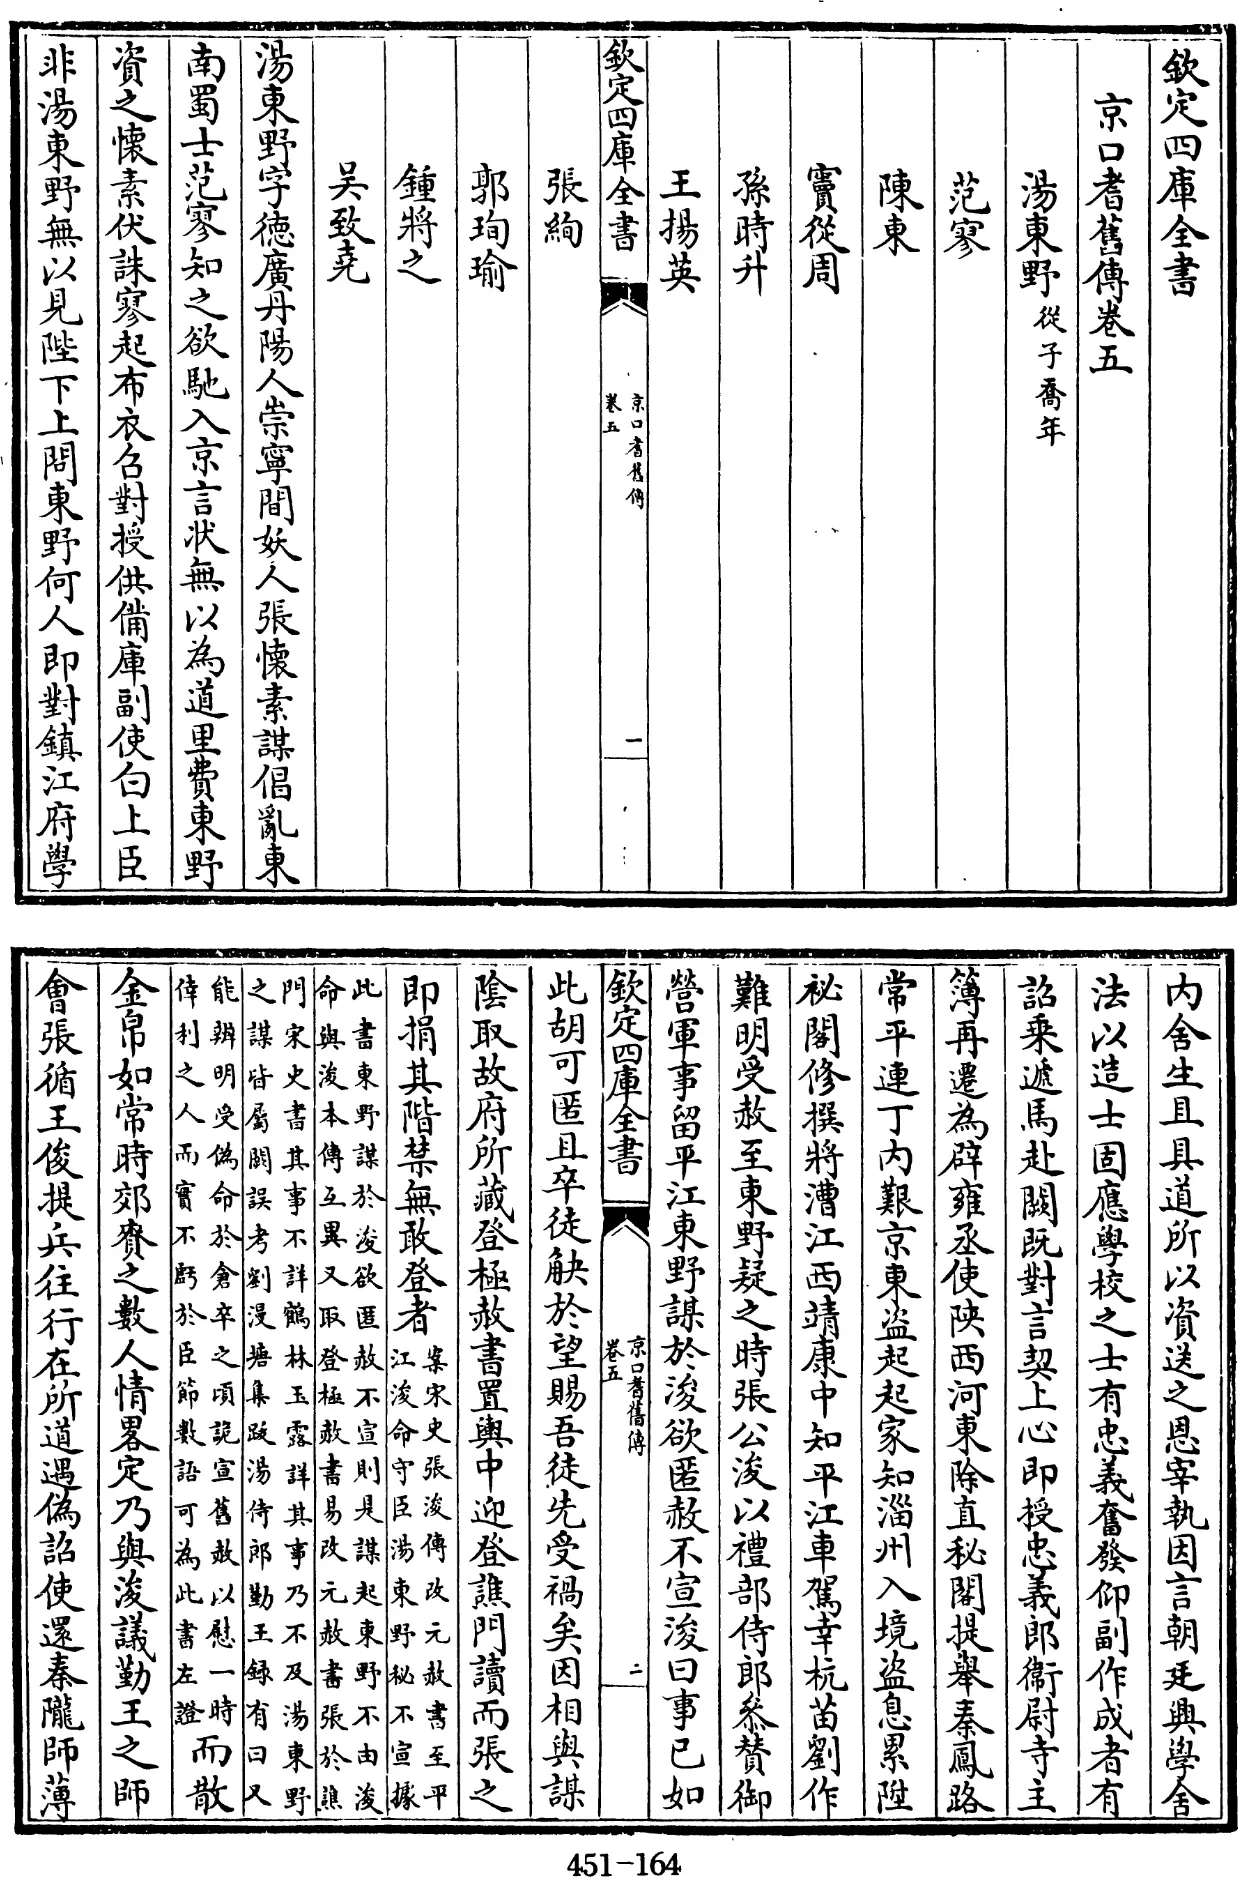 欽定四庫全書
京口耆舊傳卷五
湯東野從子喬年
范寥
陳東
竇從周
孫時升
王揚英
欽定四庫全書
京口耆舊傳
卷五
一
張絢
郭珣瑜
鍾將之
吳致堯
湯東野字徳廣丹陽人崇寧間妖人張懷素謀倡亂東
南蜀士范寥知之欲馳入京言狀無以為道里費東野
資之懷素伏誅寥起布衣召對授供備庫副使白上臣
非湯東野無以見陛下上問東野何人即對鎮江府學
內舍生且具道所以資送之恩宰執因言朝廷興學舍
法以造士固應學校之士有忠義奮發仰副作成者有
詔乘遞馬赴闕既對言契上心即授忠義郎衞尉寺主
簿再遷為辟雍丞使陜西河東除直秘閣提舉秦鳳路
常平連丁內艱京東盜起起家知淄州入境盜息累陞
祕閣修撰將漕江西靖康中知平江車駕幸杭苗劉作
難明受赦至東野疑之時張公浚以禮部侍郎叅贊御
營軍事留平江東野謀於浚欲匿赦不宣浚曰事已如
欽定四庫全書
京口耆舊傳
卷五
二
此胡可匿且卒徒觖於望賜吾徒先受禍矣因相與謀
陰取故府所藏登極赦書置輿中迎登譙門讀而張之
即捐其階禁無敢登者
案宋史張浚傳改元赦書至平
江浚命守臣湯東野秘不宣據
此書東野謀於浚欲匿赦不宣則是謀起東野不由浚
命與浚本傳互異又取登極赦書易改元赦書張於譙
門宋史書其事不詳鶴林玉露詳其事乃不及湯東野
之謀皆屬闕誤考劉漫塘集跋湯侍郎勤王録有曰又
能辨明受偽命於倉卒之頃詭宣舊赦以慰一時
倖利之人而實不虧於臣節數語可為此書左證
而散
金帛如常時郊賚之數人情畧定乃與浚議勤王之師
會張循王俊提兵往行在所道遇偽詔使還秦隴師薄
451-164